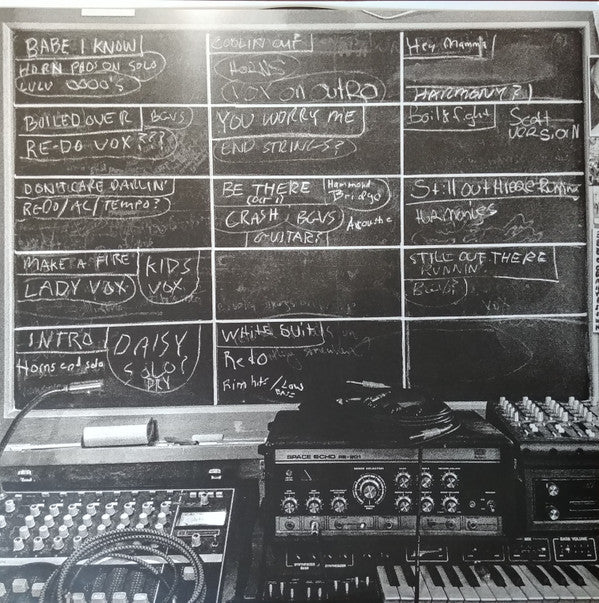 BABE I KNOW
HORN PADS ON SOLO
LULU OOOO'S
COOLIN OUT
HORNS
VOX ON OUTRO
Hey Mamma
HARMONY?
BOILED OVER BGVS
RE-DO VOX???
YOU WORRY ME
END STRINGS?
Boil & fight Scott
VERSION
DON'T CARE DARLIN'
REDO/AC/TEMPO?
BE THERE Hammond
Bridge
CRASH BGVS Acoustic
GUITAR?
Still Out There Runnin
HARMONIES
MAKE A FIRE KIDS
LADY VOX VOX
STILL OUT THERE
RUNNIN
BGVS?
VOX
INTRO DAISY
Horns end solo SOLO?
DRY
WHITE SUIT
Redo
Rim hits / Low
SPACE ECHO RE-201
MODE SELECTOR
SYNTHESIZER
BASS
MIX
BASS VOLUME